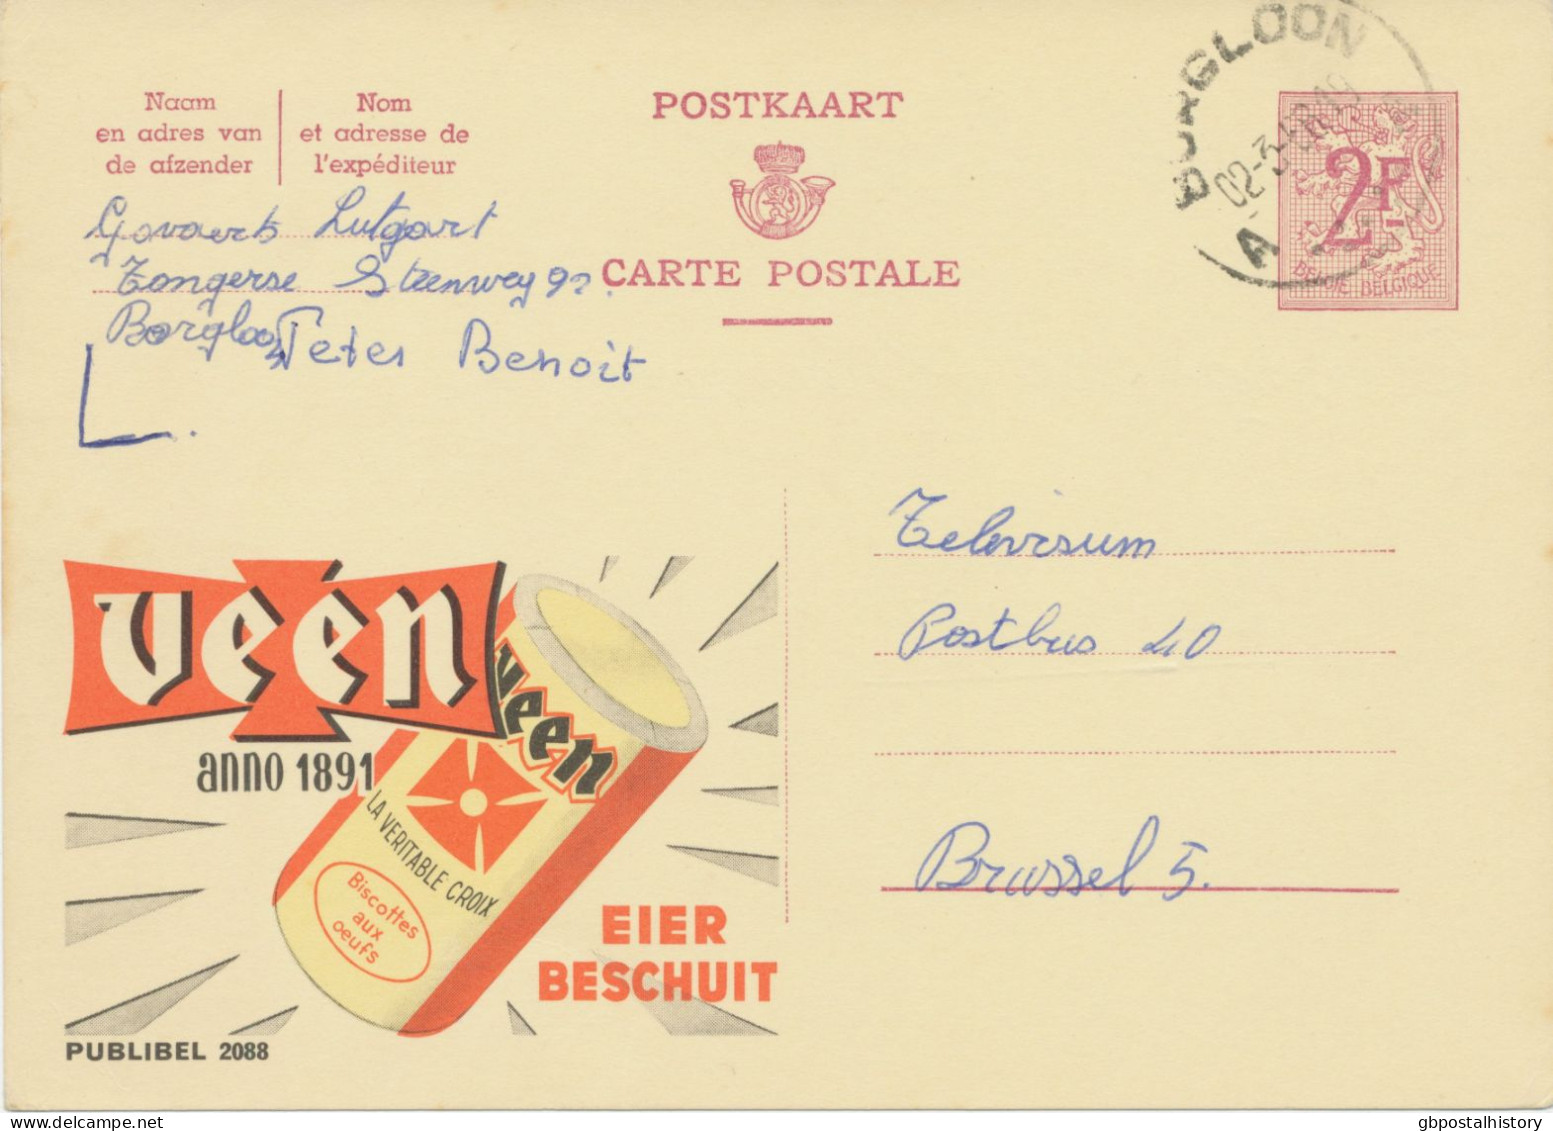 Naam
en adres van
de afzender
Nom
et adresse de
l'expéditeur
POSTKAART
CARTE POSTALE
BORGLOON
A
2F
BELGIE BELGIQUE
Govaerts Lutgart
Tongerse Steenweg 92.
Borgloon
Peter Benoit
Televisum
Postbus 40
Brussel 5.
veen
anno 1891
veen
LA VERITABLE CROIX
Biscottes
aux
oeufs
EIER
BESCHUIT
PUBLIBEL 2088
gbpostalhistory